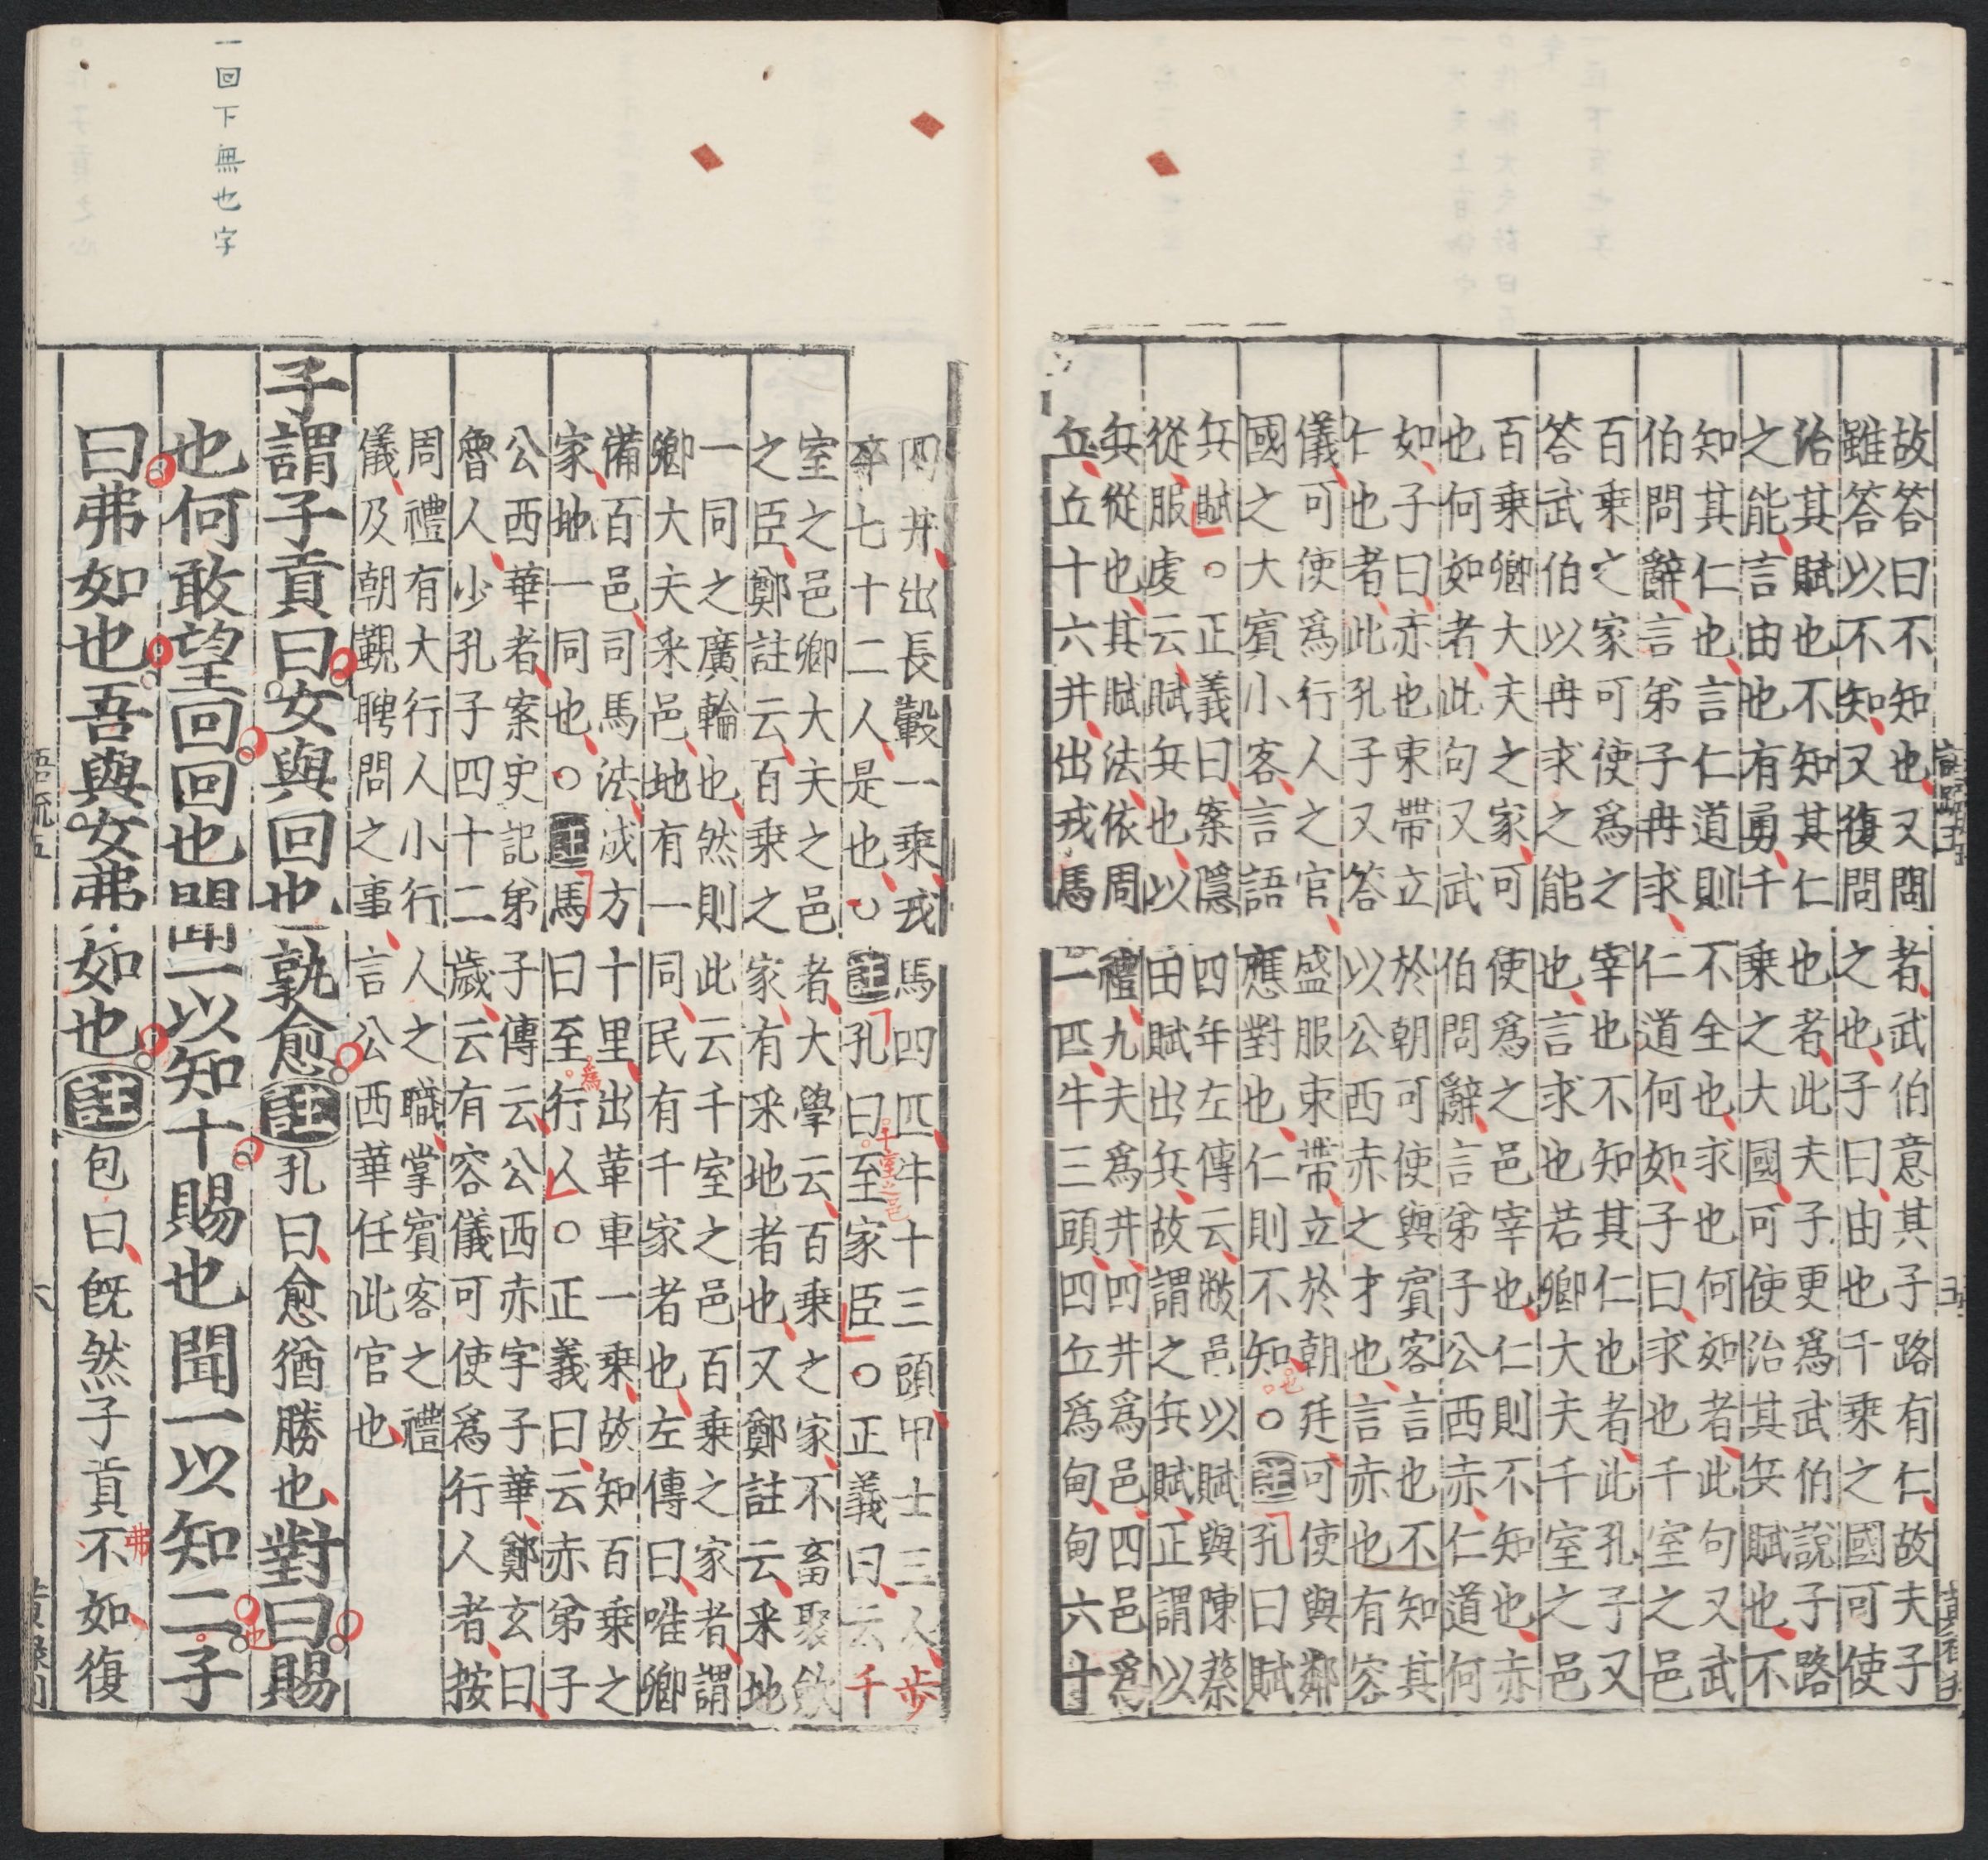 故答曰不知也又問者武伯意其子路有仁故夫子
雖答以不知又復問之也子曰由也千乘之國可使
治其賦也不知其仁也者此夫子更爲武伯說子路
之能言由也有勇千乘之大國可使治其兵賦也不
知其仁也言仁道則不全也求也何如者此句又武
伯問辭言弟子冉求仁道何如子曰求也千室之邑
百乘之家可使爲之宰也不知其仁也者此孔子又
答武伯以冉求之能也言求也若卿大夫千室之邑
百乘卿大夫之家可使爲之邑宰也仁則不知也赤
也何如者此句又武伯問辭言弟子公西赤仁道何
如子曰赤也束帶立於朝可使與賓客言也不知其
仁也者此孔子又答以公西赤之才也言赤也有容
儀可使爲行人之官盛服束帶立於朝廷可使與鄰
國之大賓小客言語應對也仁則不知也○註孔曰賦
兵賦○正義曰案隱四年左傳云敝邑以賦與陳蔡
從服虔云賦兵也以田賦出兵故謂之兵賦正謂以
兵從也其賦法依周禮九夫爲井四井爲邑四邑爲
丘丘十六井出戎馬一匹牛三頭四丘爲甸甸六十
四井出長轂一乘戎馬四匹牛十三頭甲士三人步
卒七十二人是也○註孔曰千室之邑至家臣○正義曰云千
室之邑卿大夫之邑者大學云百乘之家不畜聚斂
之臣鄭註云百乘之家有采地者也又鄭註云采地
一同之廣輪也然則此云千室之邑百乘之家者謂
卿大夫采邑地有一同民有千家者也左傳曰唯卿
備百邑司馬法成方十里出革車一乘故知百乘之
家地一同也○註馬曰至爲行人○正義曰云赤弟子
公西華者案史記弟子傳云公西赤字子華鄭玄曰
魯人少孔子四十二歲云有容儀可使爲行人者按
周禮有大行人小行人之職掌賓客之禮
儀及朝覲聘問之事言公西華任此官也
子謂子貢曰女與回也孰愈註孔曰愈猶勝也對曰賜
也何敢望回回也聞一以知十賜也聞一以知二也子
曰弗如也吾與女弗如也註包曰旣然子貢不弗如復
一回下無也字
六